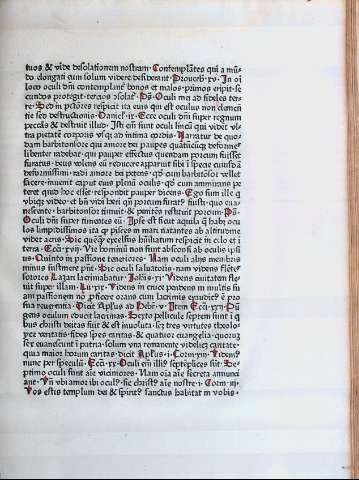 tuos & vide desolationem nostram. Contemplātes qui a mū
do elongati eum solum videre desiderant. Proverb. xv. In oī
loco oculi dn̄i contemplant bonos et malos. primos eripit. se
cundos protegit. tercios
Oculi mei ad fideles ter
re. Sed in pctōres respicit ita eius qui est oculus non clemen
tie sed destructionis. Daniel. ix. Ecce oculi dn̄i super regnum
peccās & destruit illud. sunt oculi lincū qui videt
corporis ad intima cordis. Narratur de quo
dam barbitonsore qui amore dei pauperes quātūcūq deforme
libenter radebat. qui pauper effectus quendam porcum fuisset
furatus. deus volens eū reducere apparuit sibi ī specie cuiusdā
deformissimi. radi amore dei petens. qd cum barbitonsor vellet
facere. invenit caput eius plenū oculis. qd cum admirans pe
teret quid hoc esset. respondit pauper dicens. Ego sum ille q
ubiq video. et bn̄ vidi heri qn̄ porcum furat fuisti. quo eua
nescente. barbitonsor timuit & penitēs restituit porcum.
Oculi dn̄i super timentes eū. Ipse est sicut aquila q habēs ocu
los limpidissimos ita q pisces in mari natantes ab altitudine
videt aeris. Sic quoq excelsus humilia respicit in celo et ī
terra. Ecc. xvii. Vie hominū non sunt absconsi ab oculis ipsi
us. Quinto in passione teneriores. Nam oculi aliis men bris
minus sustinent pūct. Sic oculi saluatoris. nam videns flētes
sorores Lazari lacrimabatur. Johīs. xi. Videns civitatem fleuit
super illam. Lu. xix. Videns in cruce pendens in multis su
am passionem nō pficere orans cum lacrimis exaudit e pro
sua reuerentia. Dicit Apl̄us ad Hebr. v. Item Ecc. xxii. Pū
gens oculum educit lacrimas. Sexto pellicule septem sunt ī q
bus christi deitas fuit & est inuoluta. sex tres virtutes theolo
gice veritatis. fides spes caritas. & quatuor euangelia. quorum
sex euanescunt ī patria. solum vna remanente videlicet caritate.
qua maior horum caritas. dicit Apl̄us. i. Corin. xiii. Videm
nunc per speculū. Ecc. xx. Oculi em̄ illi septēplices sunt. Se
ptimo oculi sunt aīe viciniores. Nam oīa aīe secreta annunci
ant. Vn̄ vbi amor ibi ocul. sic christ aīe nostre. i. Corin. iii.
Vos estis templum dei & spirit sanctus habitat in vobis.